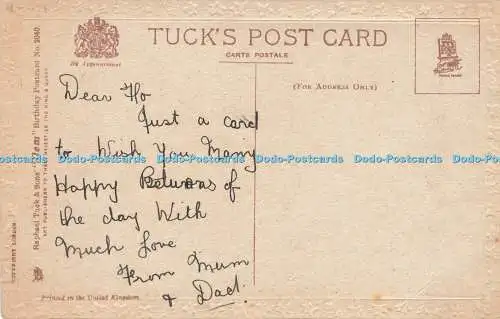 TUCK'S POST CARD
CARTE POSTALE
By Appointment
(FOR ADDRESS ONLY)
Raphael Tuck & Sons' "Gem" Birthday Postcard No. 2040.
ART PUBLISHERS TO THEIR MAJESTIES THE KING & QUEEN
Dear Flo
Just a card
to Wish You Many
Happy Returns of
the day With
Much Love
From Mum
& Dad.
Printed in the United Kingdom.
Dodo-Postcards Dodo-Postcards Dodo-Postcards Dodo-Postcards Dodo-Postcards Dodo-Postcards